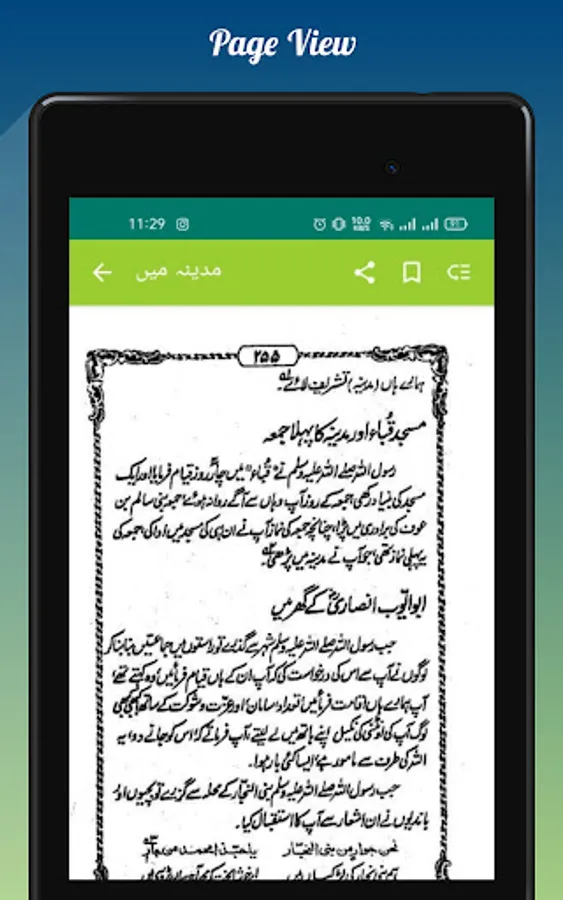 Page View
11:29
10.0
KB/S
91
مدینہ میں
۲۵۵
ہمارے ہاں (مدینہ) تشریف لائے۔
مسجد قُباء اور مدینہ کا پہلا جمعہ
رسول اللہ صلے اللہ علیہ وسلم نے "قُباء" میں چار روز قیام فرمایا اور ایک
مسجد کی بنیاد رکھی، جمعہ کے روز آپ وہاں سے آگے روانہ ہوئے، جمعہ بنی سالم بن
عوف کی برادری میں پڑا، چنانچہ جمعہ کی نماز آپ نے ان ہی کی مسجد میں ادا کی، جمعہ کی
یہ پہلی نماز تھی، جو آپ نے مدینہ میں پڑھی۔
ابو ایّوب انصاریؓ کے گھر میں
جب رسول اللہ صلے اللہ علیہ وسلم شہر سے گذرے تو راستوں میں جماعتیں بنا بنا کر
لوگوں نے آپ سے اس کی درخواست کی کہ آپ ان کے ہاں قیام فرمائیں، وہ کہتے تھے،
آپ ہمارے ہاں اقامت فرمائیں، تعداد، سامان اور عزت و شوکت کے ساتھ، کبھی کبھی
لوگ آپ کی اونٹنی کی نکیل اپنے ہاتھ میں لے لیتے، آپ فرماتے کہ اس کو جانے دو، یہ
اللہ کی طرف سے مامور ہے، ایسا کئی بار ہوا۔
جب رسول اللہ صلے اللہ علیہ وسلم بنی النجار کے محلہ سے گزرے تو بچیوں اور
باندیوں نے ان اشعار سے آپ کا استقبال کیا۔
نحن جوار من بنی النجار یا حبذا محمد من جار